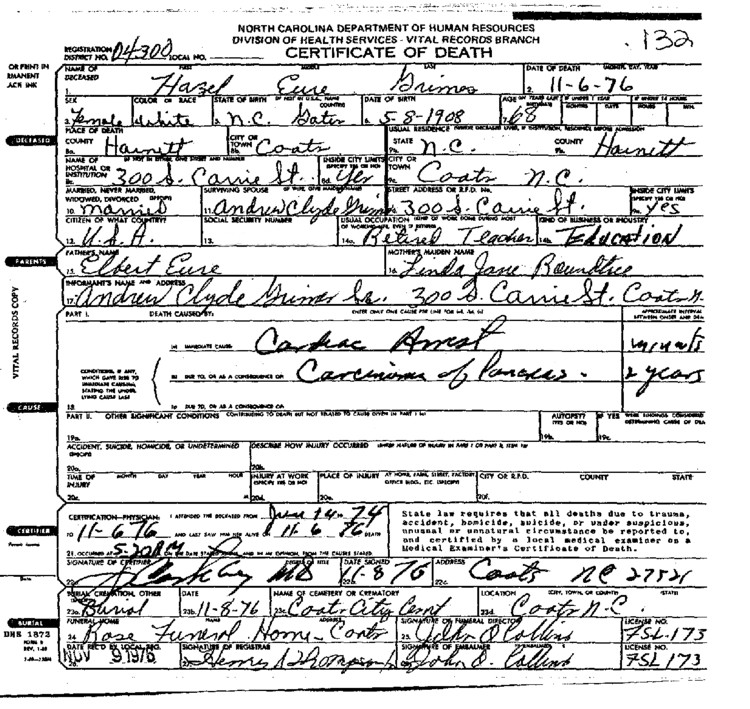 NORTH CAROLINA DEPARTMENT OF HUMAN RESOURCES
DIVISION OF HEALTH SERVICES - VITAL RECORDS BRANCH
CERTIFICATE OF DEATH
132
REGISTRATION DISTRICT NO. 04300 LOCAL NO.
OR PRINT IN
RMANENT
ACK INK
NAME OF DECEASED FIRST MIDDLE LAST DATE OF DEATH MONTH, DAY, YEAR
1. Hazel Eure Grimes 2. 11-6-76
SEX COLOR OR RACE STATE OF BIRTH COUNTRY DATE OF BIRTH AGE
3. Female 4. White 5. N.C. Gates 6. 5-8-1908 7. 68
DECEASED
PLACE OF DEATH USUAL RESIDENCE
COUNTY CITY OR TOWN STATE COUNTY
8a. Harnett 8b. Coats 9a. N.C. 9b. Harnett
NAME OF HOSPITAL OR INSTITUTION INSIDE CITY LIMITS CITY OR TOWN
8c. 300 S. Carrie St. 8d. Yes 9c. Coats N.C.
MARRIED, NEVER MARRIED, WIDOWED, DIVORCED SURVIVING SPOUSE STREET ADDRESS OR R.F.D. No. INSIDE CITY LIMITS
10. married 11. Andrew Clyde Grimes 300 S. Carrie St. Yes
CITIZEN OF WHAT COUNTRY? SOCIAL SECURITY NUMBER USUAL OCCUPATION KIND OF BUSINESS OR INDUSTRY
12. U.S.A. 13. 14a. Retired Teacher 14b. EDUCATION
PARENTS
FATHER'S NAME MOTHER'S MAIDEN NAME
15. Elbert Eure 16. Linda Jane Roundtree
INFORMANT'S NAME AND ADDRESS
17. Andrew Clyde Grimes Sr. 300 S. Carrie St. Coats N.
VITAL RECORDS COPY
PART I. DEATH CAUSED BY: ENTER ONLY ONE CAUSE PER LINE FOR (a), (b), (c) APPROXIMATE INTERVAL BETWEEN ONSET AND DEA
(a) IMMEDIATE CAUSE Cardiac Arrest minutes
CONDITIONS, IF ANY, WHICH GAVE RISE TO IMMEDIATE CAUSE(a), STATING THE UNDERLYING CAUSE LAST
(b) DUE TO, OR AS A CONSEQUENCE OF: Carcinoma of Pancreas. 2 years
CAUSE
18. (c) DUE TO, OR AS A CONSEQUENCE OF:
PART II. OTHER SIGNIFICANT CONDITIONS CONTRIBUTING TO DEATH BUT NOT RELATED TO CAUSE GIVEN IN PART I (a) AUTOPSY? (YES OR NO) IF YES WERE FINDINGS CONSIDERED DETERMINING CAUSE OF DEA
19a. 19b. 19c.
ACCIDENT, SUICIDE, HOMICIDE, OR UNDETERMINED DESCRIBE HOW INJURY OCCURRED
20a. 20b.
TIME OF INJURY MONTH DAY YEAR HOUR INJURY AT WORK PLACE OF INJURY CITY OR R.F.D. COUNTY STATE
20c. 20d. 20e. 20f.
CERTIFIER
CERTIFICATION-PHYSICIAN: I ATTENDED THE DECEASED FROM June 14 - 74
TO 11-6 76 AND LAST SAW HIM/HER ALIVE ON 11 6 76
21. OCCURRED AT 5:20 AM ON THE DATE STATED ABOVE, AND IN MY OPINION, FROM THE CAUSES STATED
State law requires that all deaths due to trauma,
accident, homicide, suicide, or under suspicious,
unusual or unnatural circumstance be reported to,
and certified by a local medical examiner on a
Medical Examiner's Certificate of Death.
SIGNATURE OF CERTIFIER DATE SIGNED ADDRESS
22a. MD 22b. 11-8 76 22c. Coats NC 27521
BURIAL, CREMATION, OTHER DATE NAME OF CEMETERY OR CREMATORY LOCATION (CITY, TOWN, OR COUNTY) (STATE)
23a. Burial 23b. 11-8-76 23c. Coats City Cem 23d. Coats N.C.
BURIAL
DHS 1872
FUNERAL HOME NAME ADDRESS SIGNATURE OF FUNERAL DIRECTOR LICENSE NO.
24. Rose Funeral Home - Coats 25. John O Collins FSL-173
DATE REC'D BY LOCAL REG. SIGNATURE OF REGISTRAR SIGNATURE OF EMBALMER LICENSE NO.
NOV 9 1976 Henry Thompson John O. Collins FSL 173